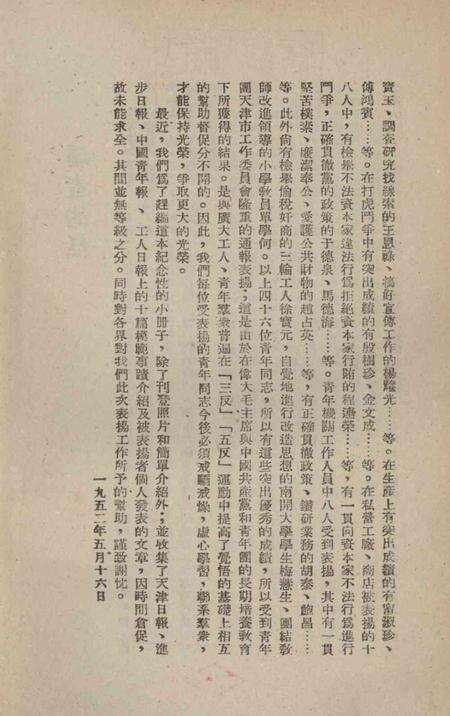 寶玉、調查研究找線索的王恩祿、搞好宣傳工作的楊耀光……等。在生產上有突出成績的有甯淑珍、
傅鴻賓……等。在打虎鬥爭中有突出成績的有殷樹珍、金文成……等。在私營工廠、商店被表揚的十
八人中，有檢舉不法資本家違法行爲拒絕資本家行賄的程連榮……等，有一貫向資本家不法行爲進行
鬥爭，正確貫徹黨的政策的于德泉、馬德海……等。青年機關工作人員中八人受到表揚，其中有一貫
堅苦樸素、廉潔奉公、愛護公共財物的趙占英……等，有正確貫徹政策、鑽研業務的胡泰、鮑昌……
等。此外尙有檢舉偷稅奸商的三輪工人徐寶元，自覺地進行改造思想的南開大學學生梅慈生、團結敎
師改進領導的小學敎員單學何。以上四十六位青年同志，所以有這些突出優秀的成績，所以受到青年
團天津市工作委員會隆重的通報表揚，這是由於在偉大毛主席與中國共產黨和青年團的長期培養敎育
下所獲得的結果。是與廣大工人、青年羣衆普遍在「三反」「五反」運動中提高了覺悟的基礎上相互
的幫助督促分不開的。因此，我們每位受表揚的青年同志今後必須戒驕戒燥，虛心學習，聯系羣衆，
才能保持光榮，爭取更大的光榮。
最近，我們爲了趕編這本紀念性的小册子，除了刊登照片和簡單介紹外；並收集了天津日報、進
步日報、中國青年報、工人日報上的十篇模範事蹟介紹及被表揚者個人發表的文章，因時間倉促，
故未能求全。其間並無等級之分。同時對各界對我們此次表揚工作所予的幫助，謹致謝忱。
一九五二年五月十六日